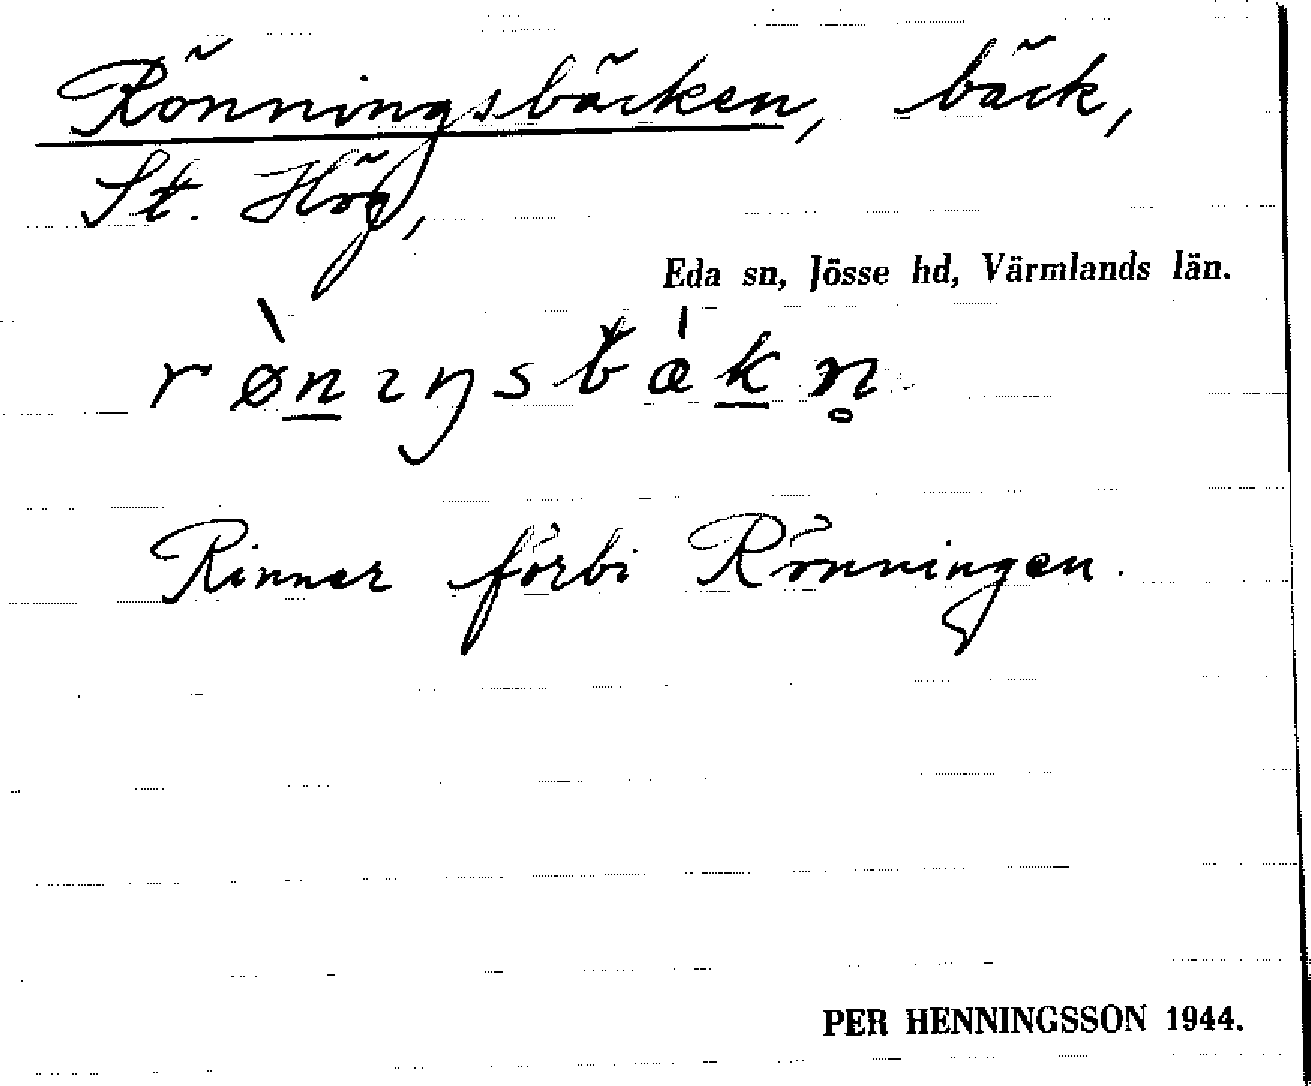 Rönningsbäcken, bäck,
St. Hög,
Eda sn, Jösse hd, Värmlands län.
rø̀n̲ɩŋsbæ̀k̲n̥
Rinner förbi Rönningen.
PER HENNINGSSON 1944.